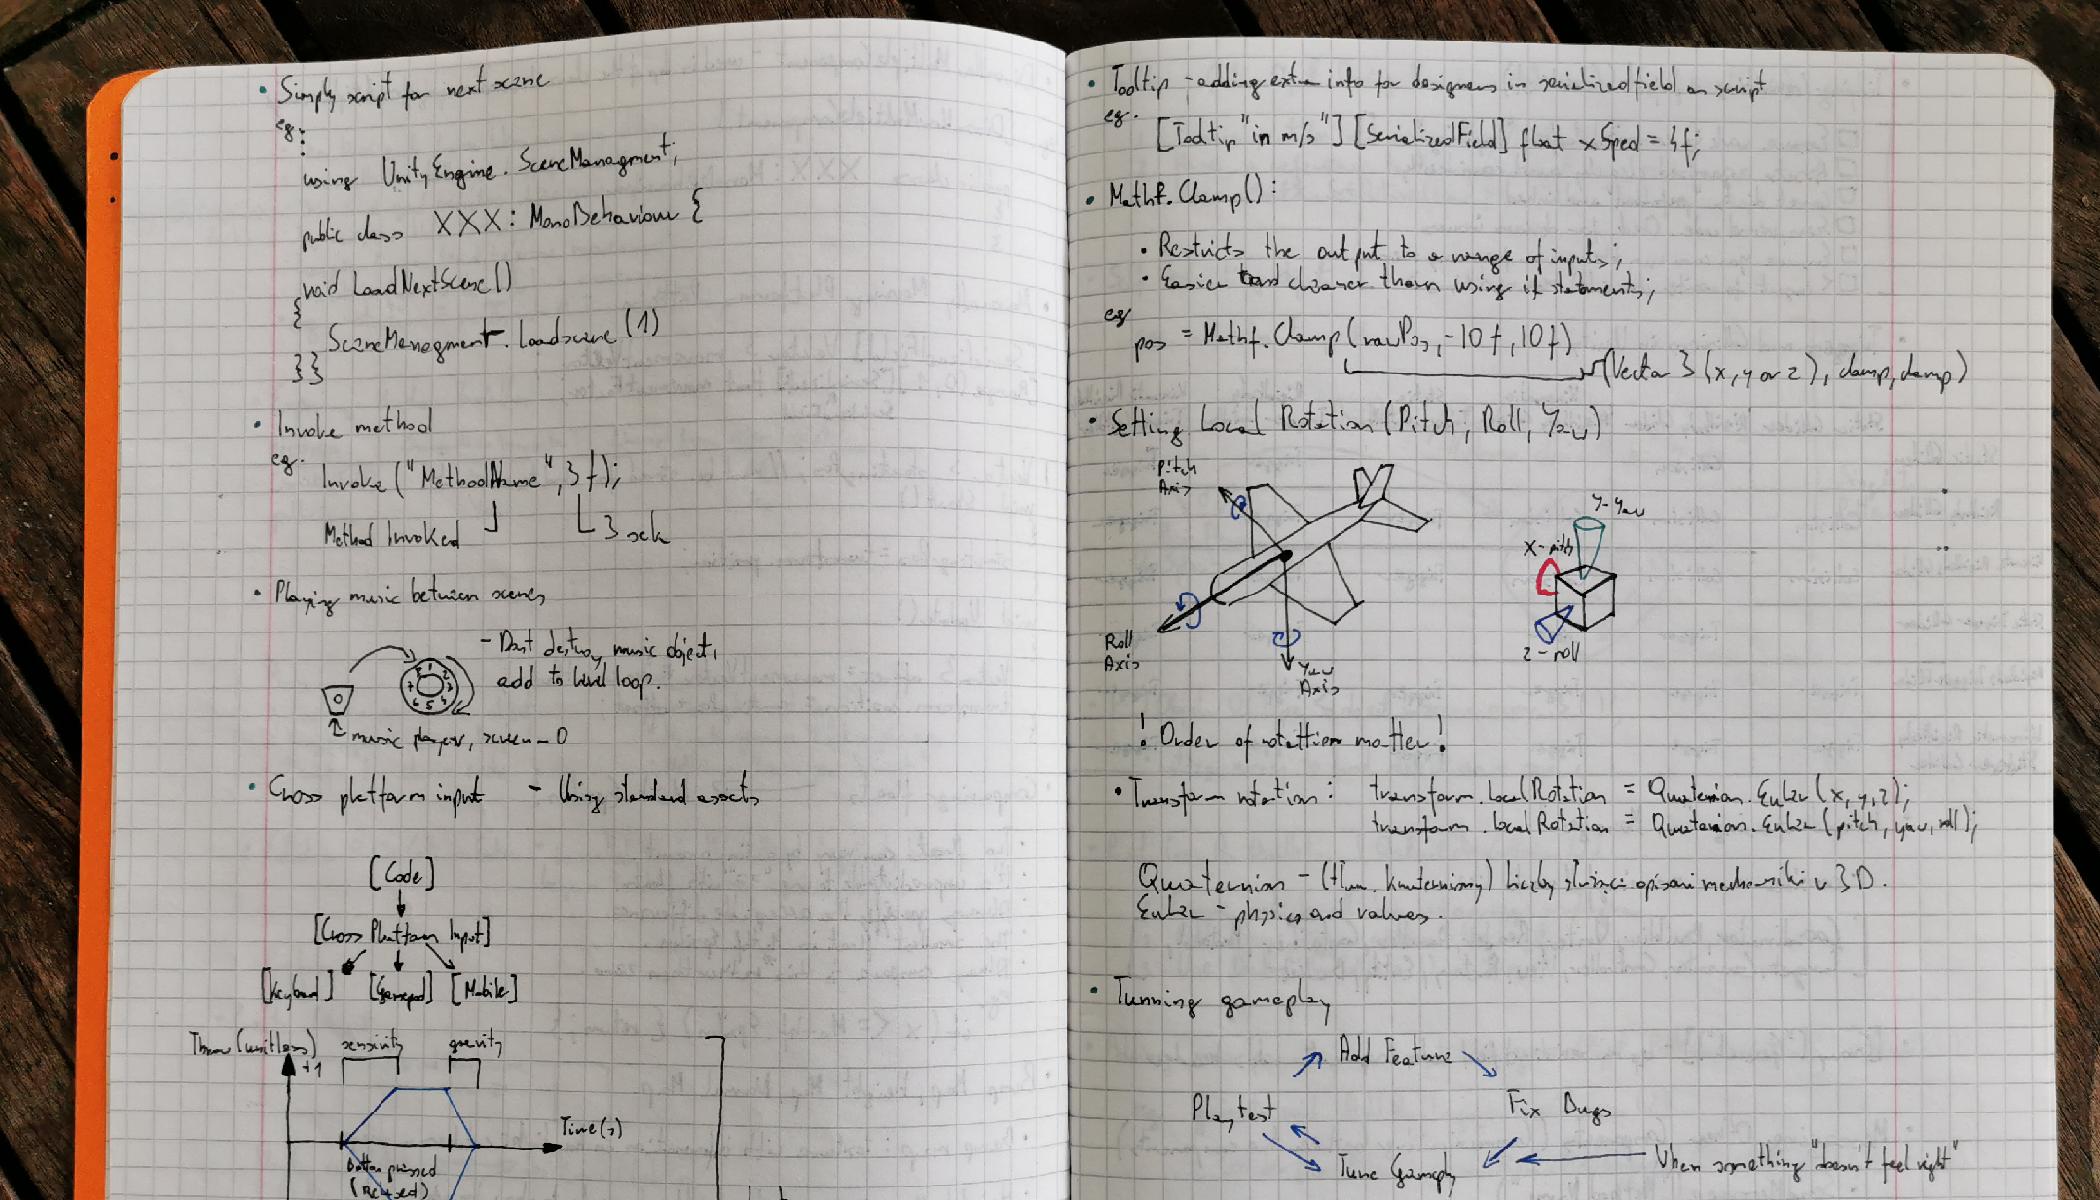 • Simply script for next scene
eg:
using UnityEngine.SceneManagment;
public class XXX : MonoBehaviour {
void LoadNextScene()
{
SceneManagment.Loadscene(1)
}}
• Invoke method
eg.
Invoke ("MethodName", 3f);
Method Invoked
3 sek
• Playing music between scenes
- Dont destroy music object,
add to level loop.
music player, screen - 0
• Cross platform input - Using standard assets
[Code]
[Cross Platform Input]
[Keyboard] [Gamepad] [Mobile]
Throw (unitless) sensivity gravity
+1
Time(s)
Button pressed
• Tooltip - adding extra info for designers in serializedfield on script
eg.
[Tooltip "in m/s"] [SerializedField] float xSped = 4f;
• Mathf.Clamp():
• Restricts the output to a range of inputs;
• Easier and cleaner than using if statements;
eg
pos = Mathf.Clamp(rawPos, -10f, 10f)
(Vector3 (x, y or z), clamp, clamp)
• Setting Local Rotation (Pitch, Roll, Yaw)
Pitch
Axis
Y-Yaw
X-pitch
Z-roll
Roll
Axis
Yaw
Axis
! Order of rotattion matter!
• Transform rotation: transform.localRotation = Quaternion.Euler(x, y, z);
transform.localRotation = Quaternion.Euler(pitch, yaw, roll);
Quaternion - (tłum. kwaterniony) liczby służące opisani mechaniki w 3D.
Euler - physics and values.
• Tunning gameplay
Add Feature
Playtest Fix Bugs
Tune Gameply When something "doesn't feel right"